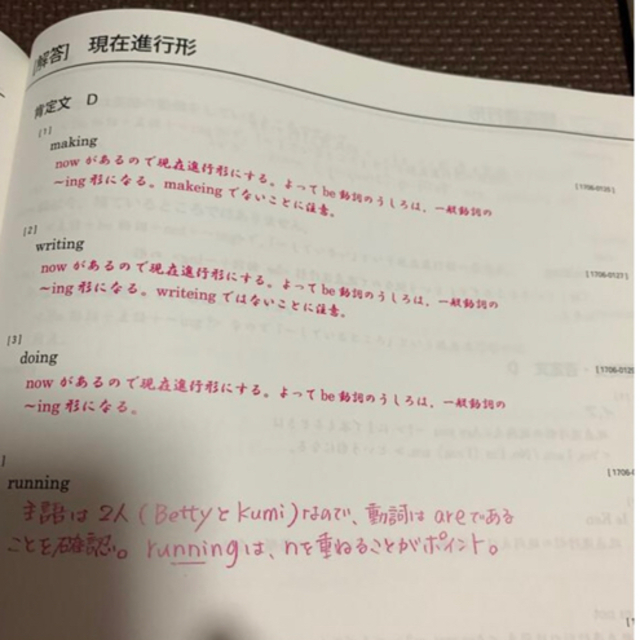 [解答] 現在進行形
肯定文 D
[1]
making
now があるので現在進行形にする。よって be 動詞のうしろは、一般動詞の
～ing 形になる。makeing でないことに注意。
[1706-0126]
[2]
writing
now があるので現在進行形にする。よって be 動詞のうしろは、一般動詞の
～ing 形になる。writeing ではないことに注意。
[1706-0127]
[3]
doing
now があるので現在進行形にする。よって be 動詞のうしろは、一般動詞の
～ing 形になる。
[1706-0129
]
running
[1706-
主語は2人(Bettyとkumi)なので、動詞はareである
ことを確認。runningは、nを重ねることがポイント。